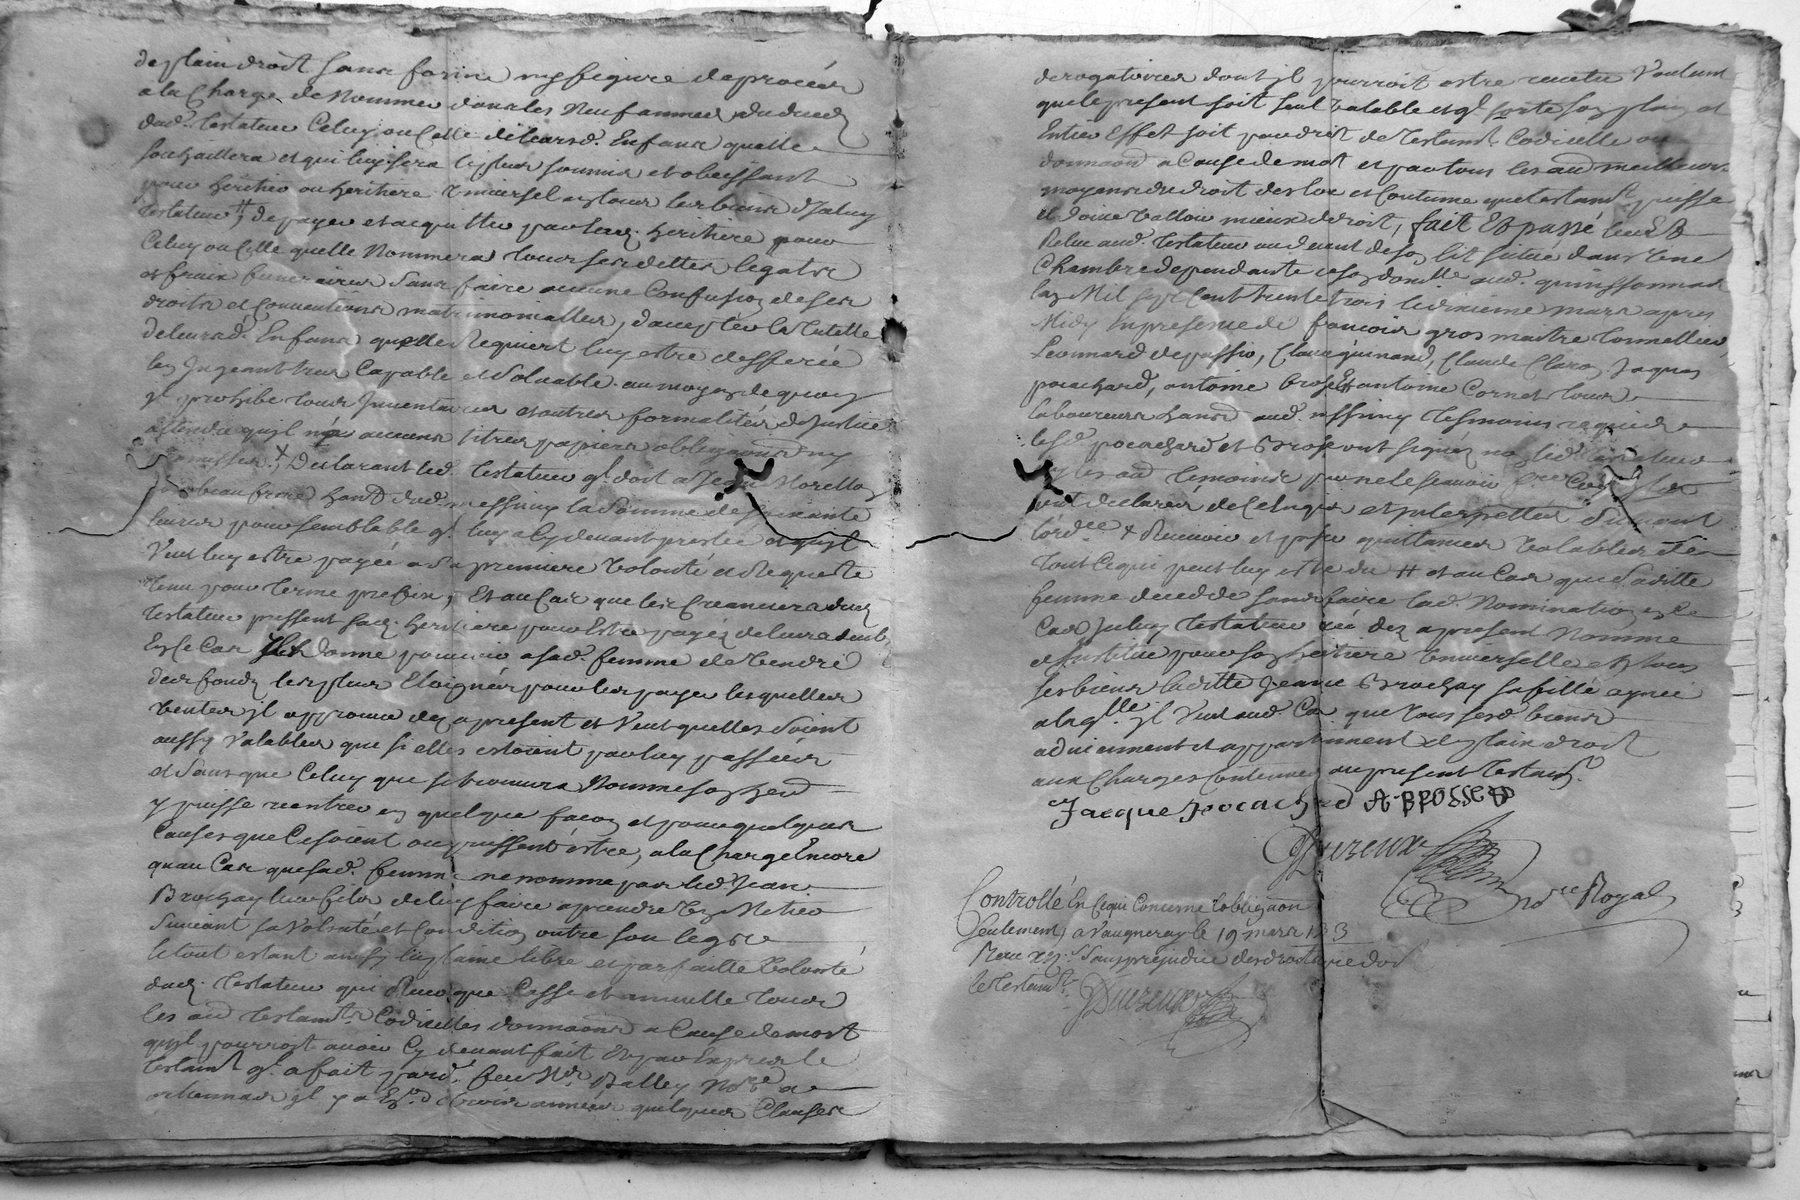 de plain droit sans forme ny figure de procès
a la Charge de Nommer dans les Neuf années du deces
dud. testateur Celuy ou Celle de leursd. Enfans quelle
souhaittera et qui luy sera le plus soumis et obeissant
pour heritier ou heritiere universel en tous les biens d'Iceluy
testateur, de payer et acquitter par sad. heritiere pour
Celuy ou Celle quelle Nommera tous ses dettes legats
et fraix funeraires Sans faire aucune Confusion de ses
droits et Conventions matrimonialles, d'accepter la tutelle
de leursd. Enfans quelle Requiert luy estre defferée
les Jugeant tres Capable et Solvable au moyen de quoy
Jl prohibe tous Jnventaires et autres formalités de Justice
attendu qu'jl n'a aucuns titres papiers obligaons ny
promesses, Declarant led. testateur qe. doit a
son beaufrere hant. dud. messimy la Somme de soixante
livres pour semblable qe. luy a Cy devant prestée et qu'jl
Veut luy estre payée a sa premiere Volonté et Requeste
tenu pour terme prefix, Et au Cas que les Creanciers dud.
testateur pressent sad. heritiere pour Estre payéz de leurs deubs
En Ce Cas Jl donne pouvoir a sad. femme de Vendre
des fonds les plus Eloignés pour les payer lesquelles
Ventes jl approuve dez a present et Veut quelles Soient
aussy Valables que si elles estoient par luy passées
et Sans que Celuy que se trouvera Nommé son herd.
y puisse rentrer en quelque facon et pour quelques
Causes que Ce soient ou puissent estre, a la Charge Encore
qu'au Cas que sad. femme ne nomme pas led. Jean
Brochay leur fils de luy faire aprendre Un Metier
Suivant sa Volonté et Condition outre son legs
le tout estant ainsy la plaine libre et parfaitte Volonté
dud. testateur qui Revoque Casse et annulle tous
les au. testamts. Codicilles donnaons a Cause de mort
qu'jl pourroit avoir Cy devant fait Et par Exprès le
testamt. qe. a fait pard. feu Mr. Balley Nore. a
jl y a Enon. trois années quelques Clauses
derogatoires dont jl pourroit estre revetu Voulant
que le present soit seul Valable et qe. sorte son plain et
Entier Effet soit par droit de testamt. Codicille ou
donnaon a Cause de mort et par tous les au. meilleurs
moyens de droit des loix et Coutume que testamt. puisse
et doive Valloir mieux de droit, fait Et passé leu &
Releu aud. testateur au devant de son lit situé dans Une
Chambre dependante de son domlle. aud. quinsonnas
lan Mil sept Cent trente trois le dixieme mars apres
Midy En presence de francois gros maitre tonnellier
Leonnard depassio, Claude Claron Jaques
pocachard, antoine brosse Et antoine Cornet tous
laboureurs hants. aud. messimy tesmoins requis
lesd. pocachard et Brosse ont signéz non led. testateur
ny les au. temoins pour ne le scavoir
ont declarés de Ce Enquis et Jnterpellés Suivant
lordce. + Recevoir et passer quittances Valables de
tout Ce qui peut luy estre du # et au Cas que Laditte
femme decedde sans faire lad. Nomination en Ce
Cas Jceluy testateur a dez apresent Nommé
et Jnstitué pour son heritiere Universelle en tous
ses biens laditte Jeanne Brochay sa fille aynée
a laqlle. jl Veut aud. Cas que tous sesd. biens
adviennent et appartinnent de plain droit
aux Charges Contenues au present testamt.
Jacque pocachard A BROSSE
Duzeux
nore. Royal
Controllé En Ce qui Concerne lobligaon
Seulement, a Vaugneray le 19 mars 1733
Reçu xij s. Sans prejudice des droits que doit
le testamt. Duzeux